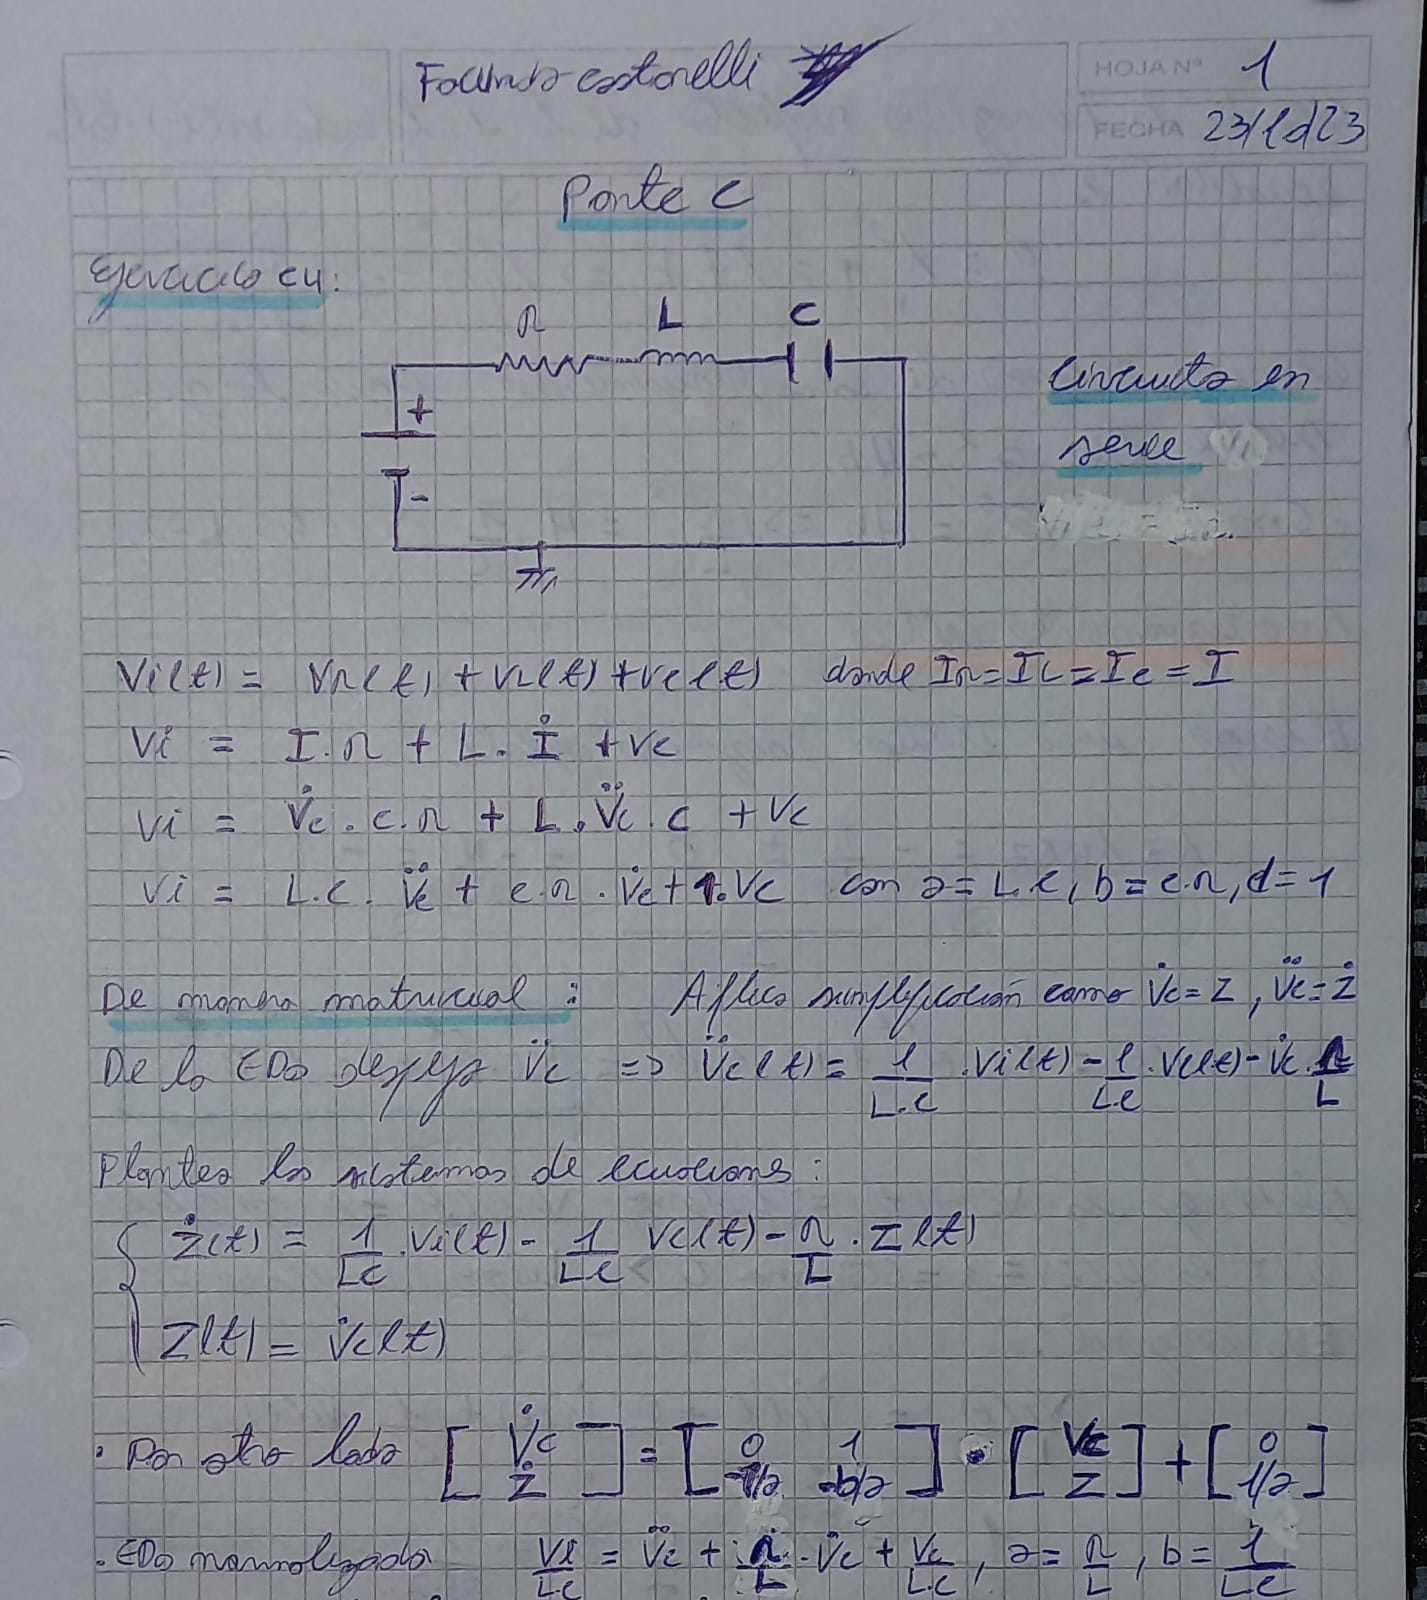 HOJA Nº 1
FECHA 23/10/23
Parte C
Ejercicio C4:
R L C
+
-
Circuito en
serie
Vi(t) = VR(t) + VL(t) + Vc(t) donde IR = IL = Ic = I
Vi = I.R + L.İ + Vc
Vi = V̇c.C.R + L.V̈c.C + Vc
Vi = L.C.V̈c + C.R.V̇c + 1.Vc con a = L.C, b = C.R, d = 1
De manera matricial: Aplico simplificación como V̇c = Z, V̈c = Ż
De la EDO despejo V̈c => V̈c(t) = 1/L.C .Vi(t) - 1/L.C .Vc(t) - V̇c.R/L
Planteo los sistemas de ecuaciones:
{ Ż(t) = 1/LC .Vi(t) - 1/LC Vc(t) - R/L . Z(t)
Z(t) = V̇c(t)
• Por otro lado [V̇c Ż] = [0 1 -1/a -b/a] • [Vc Z] + [0 1/a]
• EDO normalizada Vi/LC = V̈c + R/L . V̇c + Vc/L.C, a = R/L, b = 1/LC